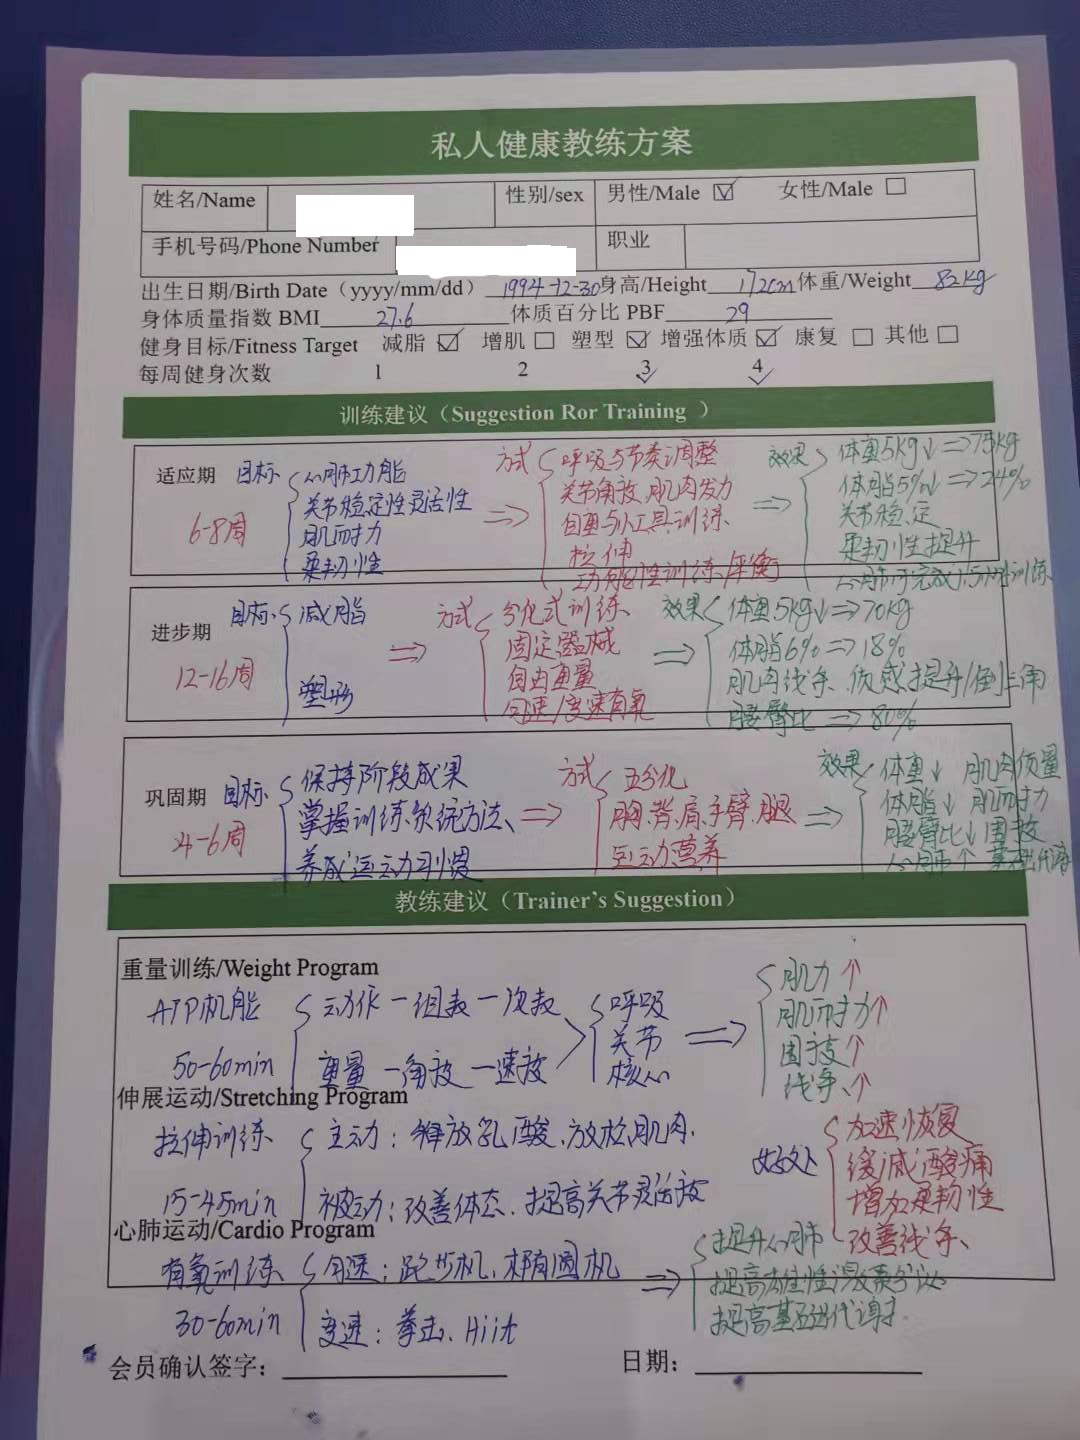 私人健康教练方案
姓名/Name 性别/sex 男性/Male ☑ 女性/Male □
手机号码/Phone Number 职业
出生日期/Birth Date（yyyy/mm/dd） 1994-12-30 身高/Height 172cm 体重/Weight 82kg
身体质量指数 BMI 27.6 体质百分比 PBF 29
健身目标/Fitness Target 减脂 ☑ 增肌 □ 塑型 ☑ 增强体质 ☑ 康复 □ 其他 □
每周健身次数 1 2 3 ✓ 4 ✓
训练建议（Suggestion Ror Training ）
适应期 6-8周
目标
心肺功能
关节稳定性灵活性
肌耐力
柔韧性
⇒
方式
呼吸与节奏调整
关节角度、肌肉发力
自重与小工具训练
拉伸
功能性训练、平衡
⇒
效果
体重5kg↓⇒75kg
体脂5%↓⇒24%
关节稳定
柔韧性提升
心肺可完成1.5小时训练
进步期 12-16周
目标
减脂
塑形
⇒
方式
分化式训练
固定器械
自由重量
匀速/变速有氧
⇒
效果
体重5kg↓⇒70kg
体脂6%⇒18%
肌肉线条、质感提升/倒三角
腰臀比⇒80%
巩固期 4-6周
目标
保持阶段成果
掌握训练系统方法、
养成运动习惯
⇒
方式
五分化
胸、背、肩、手臂、腿
运动营养
⇒
效果
体重↓ 肌肉质量
体脂↓ 肌耐力
腰臀比↓ 围度
心肺↑ 基础代谢
教练建议（Trainer's Suggestion）
重量训练/Weight Program
ATP机能
50-60min
动作—组数—次数
重量—角度—速度
呼吸
关节
核心
⇒
肌力↑
肌耐力↑
围度↑
线条↑
伸展运动/Stretching Program
拉伸训练
15-45min
主动：释放乳酸、放松肌肉.
被动：改善体态、提高关节灵活度
好处
加速恢复
缓减酸痛
增加柔韧性
改善线条、
心肺运动/Cardio Program
有氧训练
30-60min
匀速：跑步机、椭圆机
变速：拳击、Hiit
⇒
提升心肺
提高雄性激素分泌
提高基础代谢
会员确认签字： 日期：